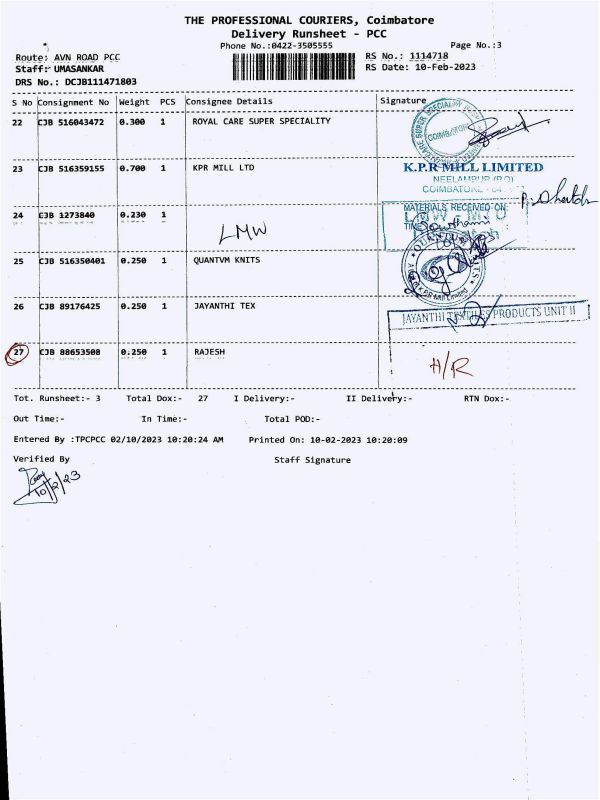 THE PROFESSIONAL COURIERS, Coimbatore
Delivery Runsheet - PCC
Phone No.:0422-3505555 Page No.:3
Route: AVN ROAD PCC RS No.: 1114718
Staff: UMASANKAR RS Date: 10-Feb-2023
DRS No.: DCJB111471803
S No Consignment No Weight PCS Consignee Details Signature
22 CJB 516043472 0.300 1 ROYAL CARE SUPER SPECIALITY
COIMBATORE
23 CJB 516359155 0.700 1 KPR MILL LTD K.P.R MILL LIMITED
NEELAMPUR (P.O)
24 CJB 1273840 0.230 1 LMW MATERIALS RECEIVED ON
25 CJB 516350401 0.250 1 QUANTVM KNITS
26 CJB 89176425 0.250 1 JAYANTHI TEX
JAYANTHI TEXTILES PRODUCTS UNIT II
27 CJB 88653508 0.250 1 RAJESH H/R
Tot. Runsheet:- 3 Total Dox:- 27 I Delivery:- II Delivery:- RTN Dox:-
Out Time:- In Time:- Total POD:-
Entered By :TPCPCC 02/10/2023 10:20:24 AM Printed On: 10-02-2023 10:20:09
Verified By Staff Signature
10/2/23